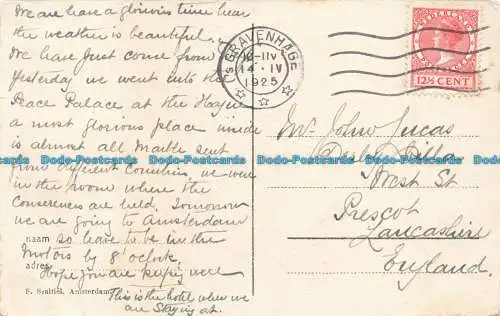 We are have a glorious time hear
the weather is beautiful.
We have just come from
yesterday we went into the
Peace Palace at the Hague
a most glorious place inside
is almost all Marble sent
from different Countries we were
in the room where the
Conserences are held. Tomorrow
we are going to Amsterdam
naam so leave to be in the
Motors by 8 o'clock.
adres
Hope you are keeping well
F. Spaltiel, Amsterdam
This is the hotel where we
are staying at.
's GRAVENHAGE
14 · IV
1925
NEDERLAND
12½ CENT
Mr John Lucas
Derby Villa
West St
Prescot
Lancashire
England.
Dodo-Postcards Dodo-Postcards Dodo-Postcards Dodo-Postcards Dodo-Postcards Dodo-Postcards